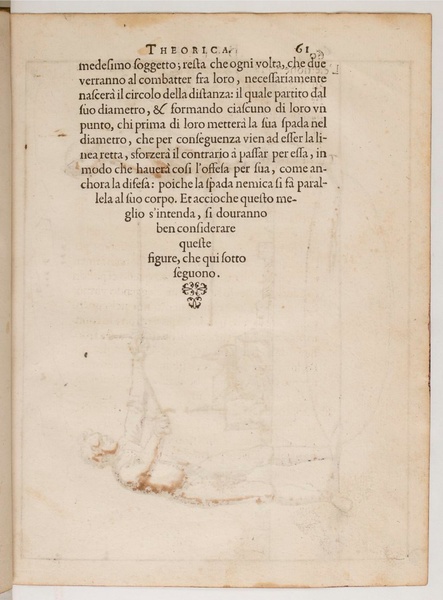 THEORICA. 61
medesimo ſoggetto; reſta che ogni volta, che due
verranno al combatter fra loro, neceſſariamente
naſcerà il circolo della diſtanza: il quale partito dal
ſuo diametro, & formando ciaſcuno di loro vn
punto, chi prima di loro metterà la ſua ſpada nel
diametro, che per conſeguenza vien ad eſſer la li-
nea retta, sforzerà il contrario à paſſar per eſſa, in
modo che hauerà coſi l'offeſa per ſua, come an-
chora la difeſa: poiche la ſpada nemica ſi fà paral-
lela al ſuo corpo. Et accioche queſto me-
glio s'intenda, ſi douranno
ben conſiderare
queſte
figure, che qui ſotto
ſeguono.